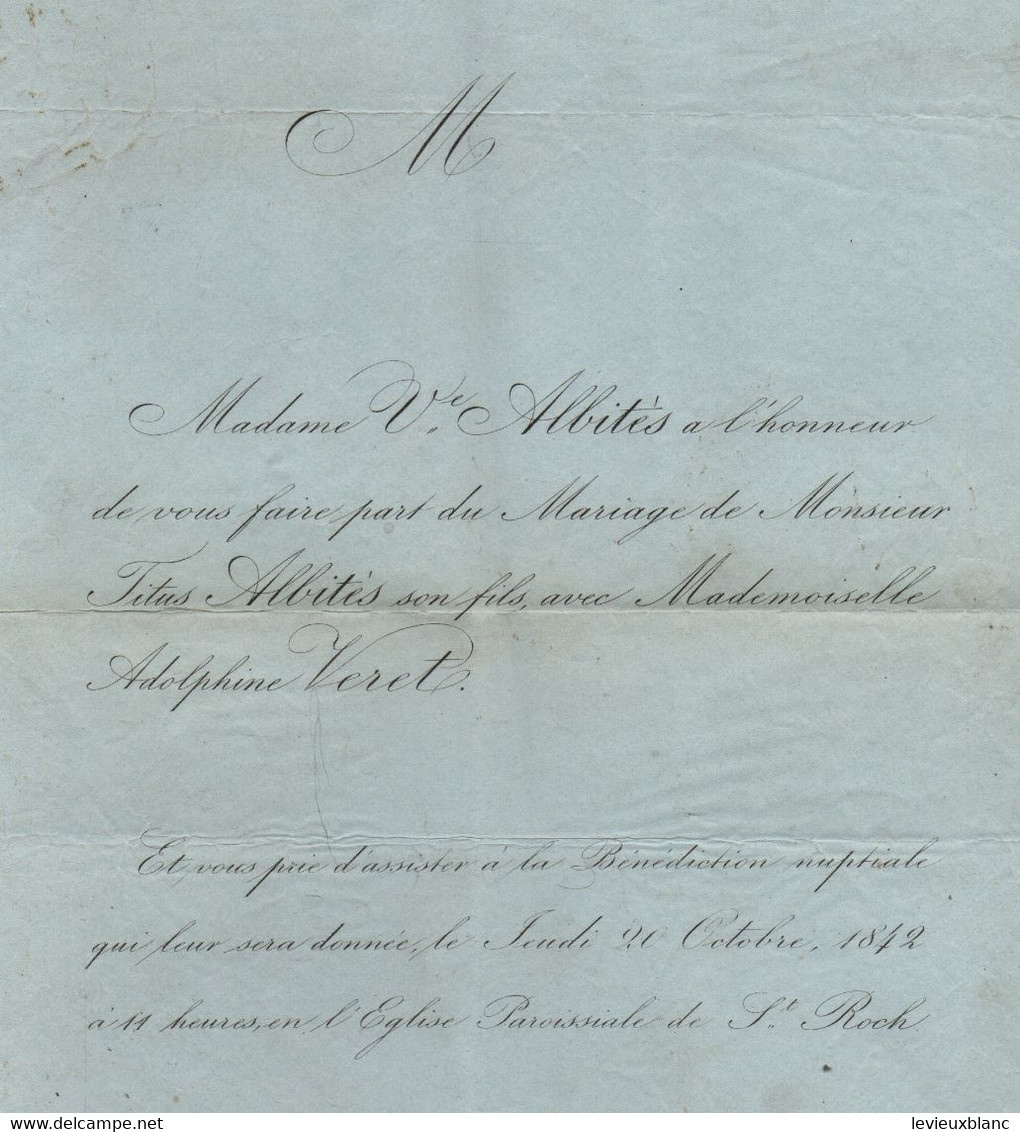 M
Madame V.e Albitès a l'honneur
de vous faire part du Mariage de Monsieur
Titus Albitès son fils, avec Mademoiselle
Adolphine Veret.
Et vous prie d'assister à la Bénédiction nuptiale
qui leur sera donnée, le Jeudi 20 Octobre, 1842
à 11 heures, en l'Eglise Paroissiale de S.t Roch
delcampe.net
levieuxblanc